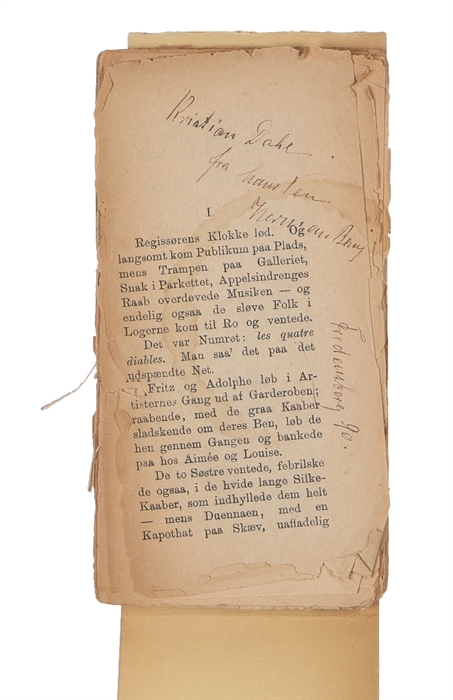 Kristian Dahl
fra hans Ven
Herman Bang
Fredensborg 90.
I
Regissørens Klokke lød. Og
langsomt kom Publikum paa Plads,
mens Trampen paa Galleriet,
Snak i Parkettet, Appelsindrenges
Raab overdøvede Musiken — og
endelig ogsaa de sløve Folk i
Logerne kom til Ro og ventede.
Det var Numret: les quatre
diables. Man saa' det paa det
udspændte Net.
Fritz og Adolphe løb i Ar-
tisternes Gang ud af Garderoben;
raabende, med de graa Kaaber
sladskende om deres Ben, løb de
hen gennem Gangen og bankede
paa hos Aimée og Louise.
De to Søstre ventede, febrilske
de ogsaa, i de hvide lange Silke-
Kaaber, som indhyllede dem helt
— mens Duennaen, med en
Kapothat paa Skæv, uafladelig